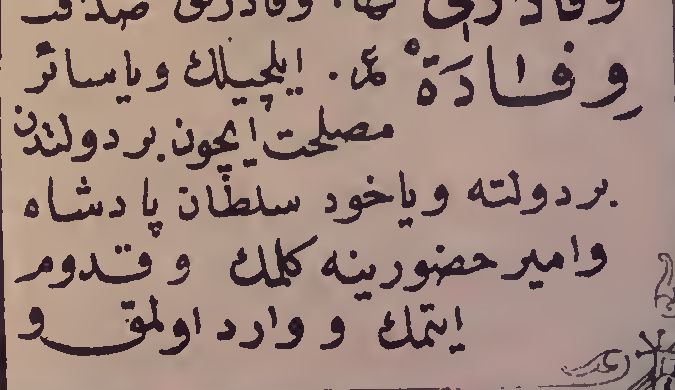 وِفَادَةْ ع. ایلچیلك ویا سائر
مصلحت ایچون بر دولتدن
بر دولته ویاخود سلطان پادشاه
وامیر حضورینه كلمك و قدوم
ایتمك و وارد اولمق و